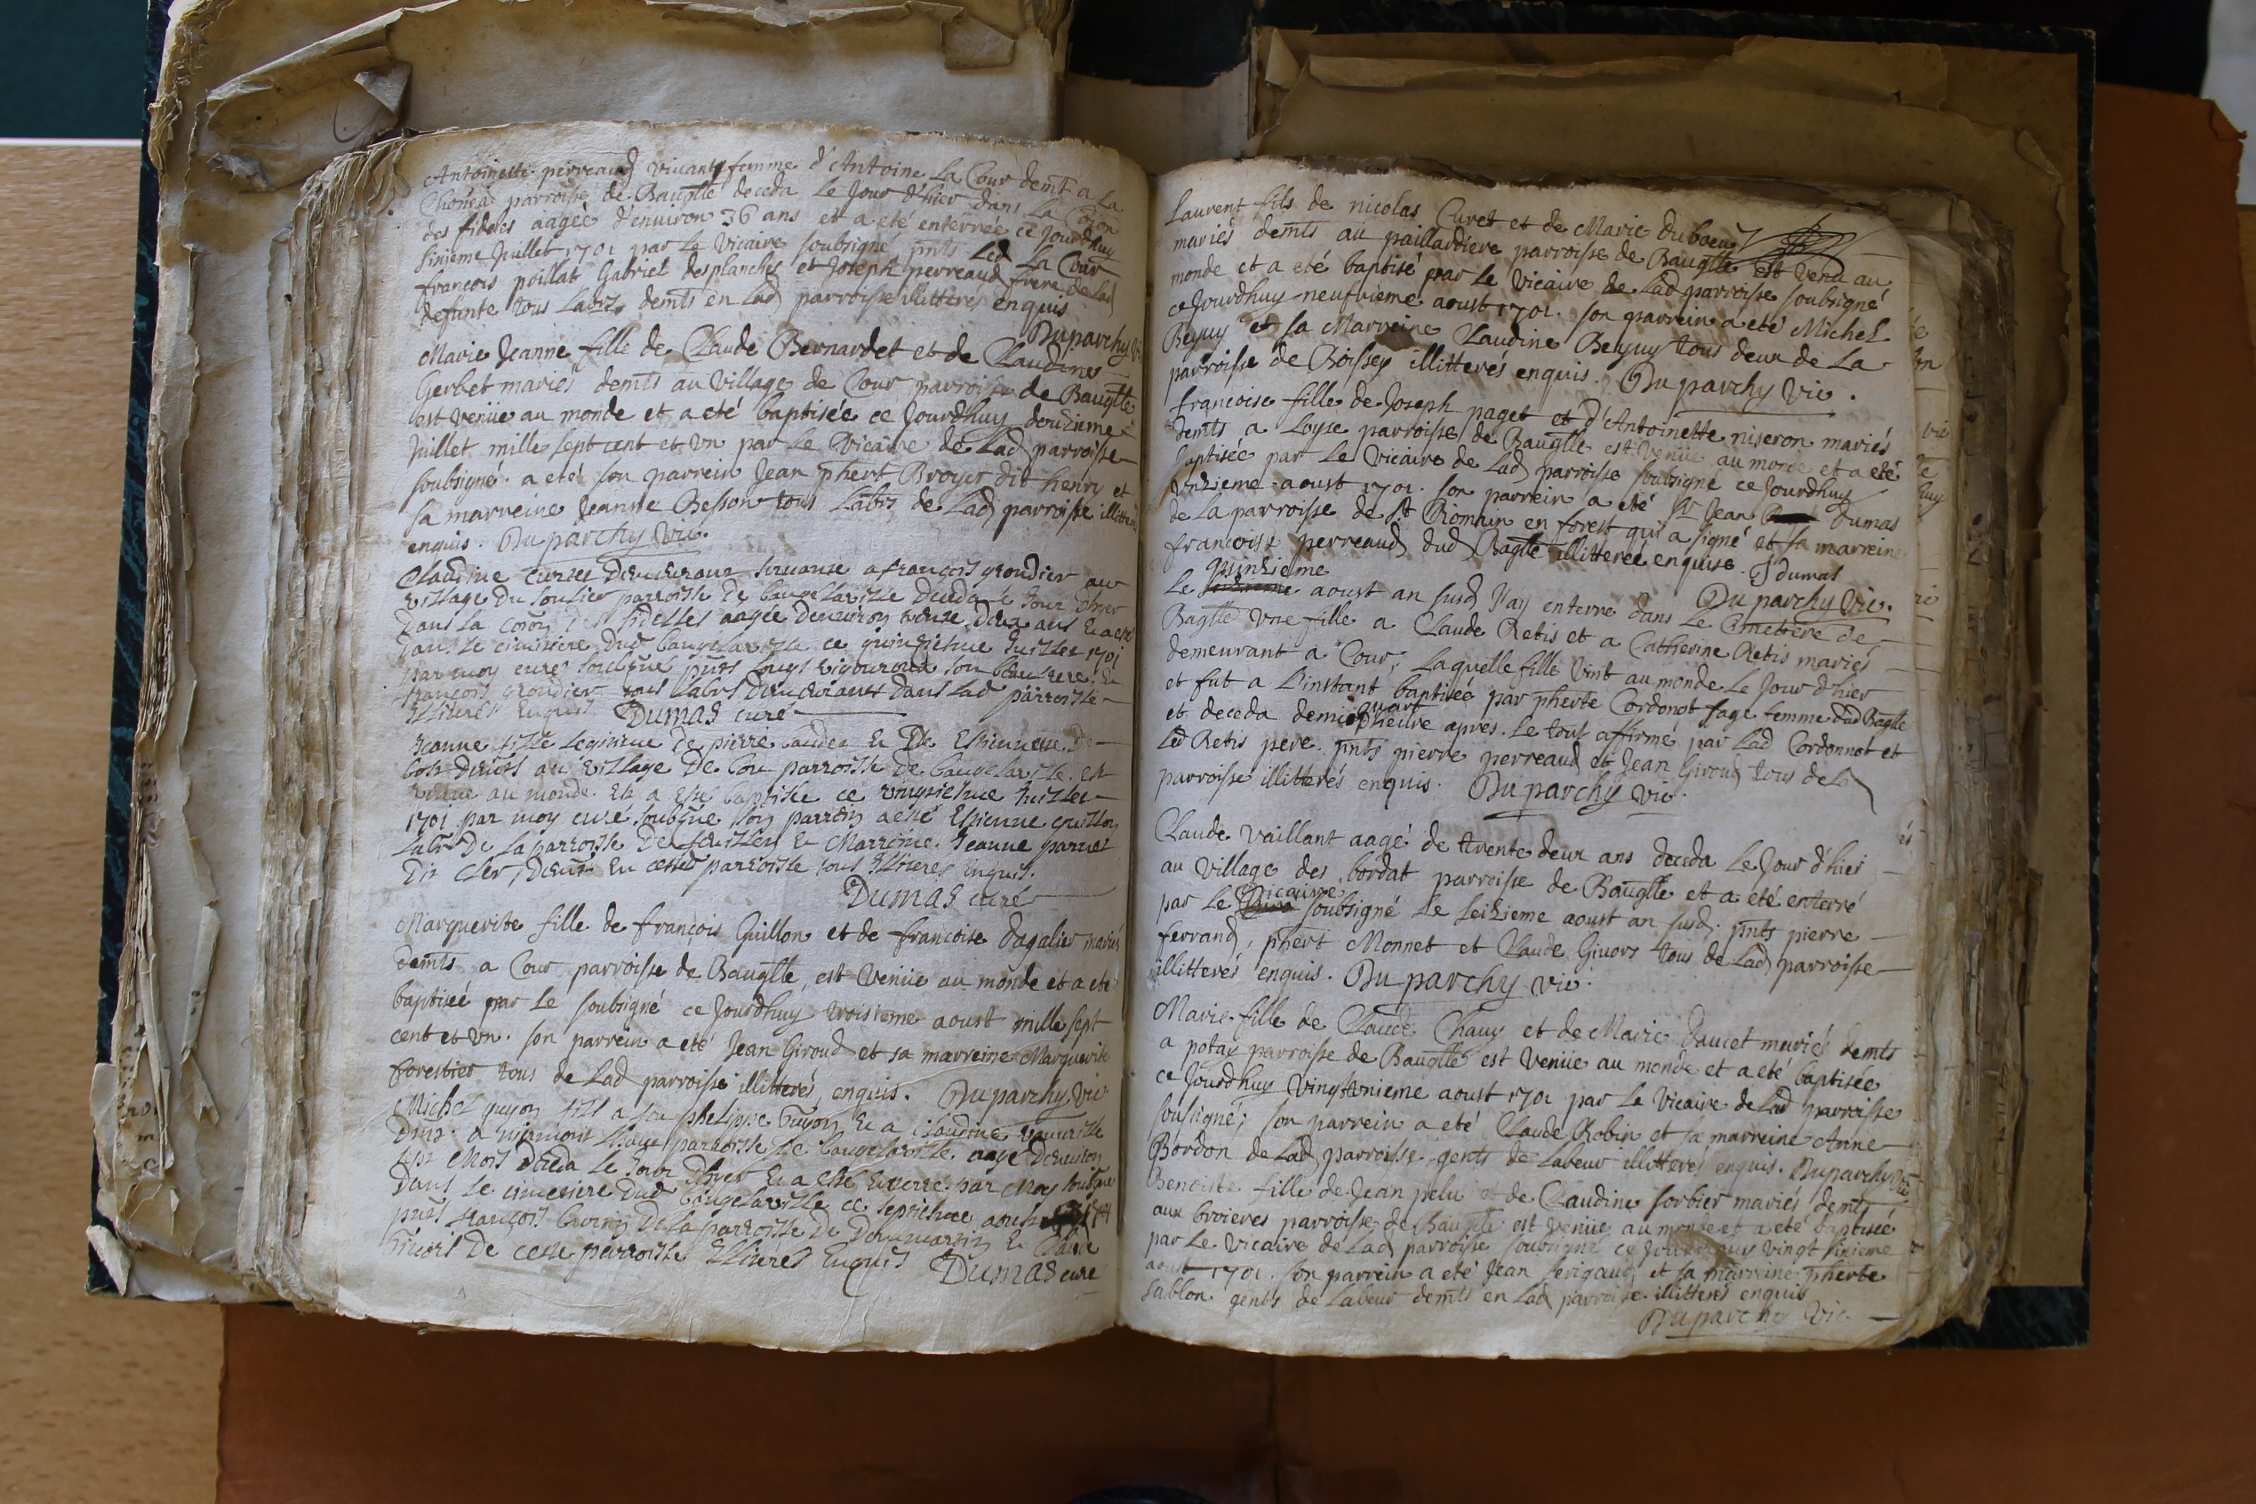 Antoinette perreaud vivante femme d'Antoine La Cour demt a La
parroisse de Bauglle deceda Le Jour d'hier dans La Coïon
des fideles aagée d'environ 36 ans et a eté enterrée ce Jourdhuy
sixieme Juillet 1701 par Le Vicaire soubsigné pnts Led La Cour
francois poillat Gabriel desplanches et Joseph perreaud frere de Lad
defunte tous Labrs demts en Lad parroisse illitterés enquis
Duparchy Vic
Marie Jeanne fille de Claude Bernardet et de Claudine
Gerbet mariés demts au Village de Cour parroisse de Bauglle
est venüe au monde et a eté baptisée ce Jourdhuy
Juillet mille sept cent et Vn par Le Vicaire de Lad parroisse
soubsigné. a eté son parrein Jean phert Broyer dit henry et
sa marreine Jeanne Besson tous Labrs de Lad parroisse illitterés
enquis. Duparchy Vic.
Claudine servante a françois grondier au
village du parroisse de baugelaville deceda le Jour d'hier
dans la coïon des fidelles aagée d'environ deux ans et a esté
dans le cimitiere dud baugelaville ce quinziesme Juillet 1701
par moy curé soubsigné pnts son beaufrere et
françois grondier tous labrs demeurants dans lad parroisse
illiterés enquis Dumas curé
Jeanne fille legitime de pierre et de Estiennette De
demts au village de Cou parroisse de baugelaville est
venue au monde et a esté baptisée ce vingtiesme Juillet
1701 par moy curé soubsigné son parrein a esté Estienne guillon
labr de la parroisse de et Marreine Jeanne
dit demt en cested parroisse tous illiterés enquis.
Dumas curé
Marguerite fille de françois Guillon et de francoise Dagalier mariés
demts a Cour parroisse de Bauglle, est Venüe au monde et a eté
baptisée par Le soubsigné ce Jourdhuy troisieme aoust mille sept
cent et Vn. son parrein a eté Jean Giroud et sa marreine Marguerite
forestier tous de Lad parroisse illitterés, enquis. Duparchy Vic
Michel guyon fils a feu phelippe Guyon et a Claudine
parroisse de baugelaville aagé d'environ
sept Mois deceda le Jour d'hyer et a esté enterré par Moy soubsigné
dans le cimetiere dud baugelaville ce septiesme aoust
pnts françois de la parroisse de et Claude
Givors de ceste parroisse illiterés enquis Dumas curé
Laurent fils de nicolas Curet et de Marie duboeuf
mariés demts au paillardiere parroisse de Bauglle est venu au
monde et a eté baptisé par Le Vicaire de Lad parroisse soubsigné
ce Jourdhuy neufvieme aoust 1701. son parrein a eté Michel
Beyuy et sa Marreine Claudine Beyuy tous deux de La
parroisse de Boissey illitterés enquis. Duparchy Vic.
francoise fille de Joseph paget et d'Antoinette niseron mariés
demts a Loyse parroisse de Bauglle est venüe au monde et a eté
baptisée par Le Vicaire de Lad parroisse soubsigné ce Jourdhuy
Vnzieme aoust 1701. son parrein a eté Sr Jean Dumas
de La parroisse de St Romain en forest qui a signé et sa marreine
francoise perreaud dud Baglle illitterée enquise. J dumas
Duparchy Vic.
quinzieme
Le aoust an susd J'ay enterre dans Le Cimetiere de
Baglle Vne fille a Claude Retis et a Catherine Retis mariés
demeurant a Cour, Laquelle fille Vint au monde Le Jour d'hier
et fut a L'instant baptisée par pherte Cordonot sage femme dud Baglle
quart
et deceda demie d'heure apres. Le tout affirmé par Lad Cordonnot et
Led Retis pere. pnts pierre perreaud et Jean Giroud tous de Lad
parroisse illitterés enquis. Duparchy Vic.
Claude Vaillant aagé de trente deux ans deceda Le Jour d'hier
au Village des bordat parroisse de Bauglle et a eté enterré
Vicaire
par Le soubsigné Le seizieme aoust an susd. pnts pierre
ferrand, phert Monnet et Claude Givors tous de Lad parroisse
illitterés enquis. Duparchy Vic.
Marie fille de Claude Chauy et de Marie Daucet mariés demts
a potay parroisse de Bauglle est Venüe au monde et a eté baptisée
ce Jourdhuy Vingtvnieme aoust 1701 par Le Vicaire de Lad parroisse
sousigné; son parrein a eté Claude Robin et sa marreine Anne
Bordon de Lad parroisse gents de Labeur illitterés enquis. Duparchy Vic
Benoiste fille de Jean pelu et de Claudine sorbier mariés demts
aux broieres parroisse de Bauglle est venüe au monde et a eté baptisée
par Le Vicaire de Lad parroisse soubsigné ce Jourdhuy Vingt sixieme
aoust 1701. son parrein a eté Jean serigaud et sa marreine pherte
Sablon. gents de Labeur demts en Lad parroisse illitterés enquis
Duparchy Vic.